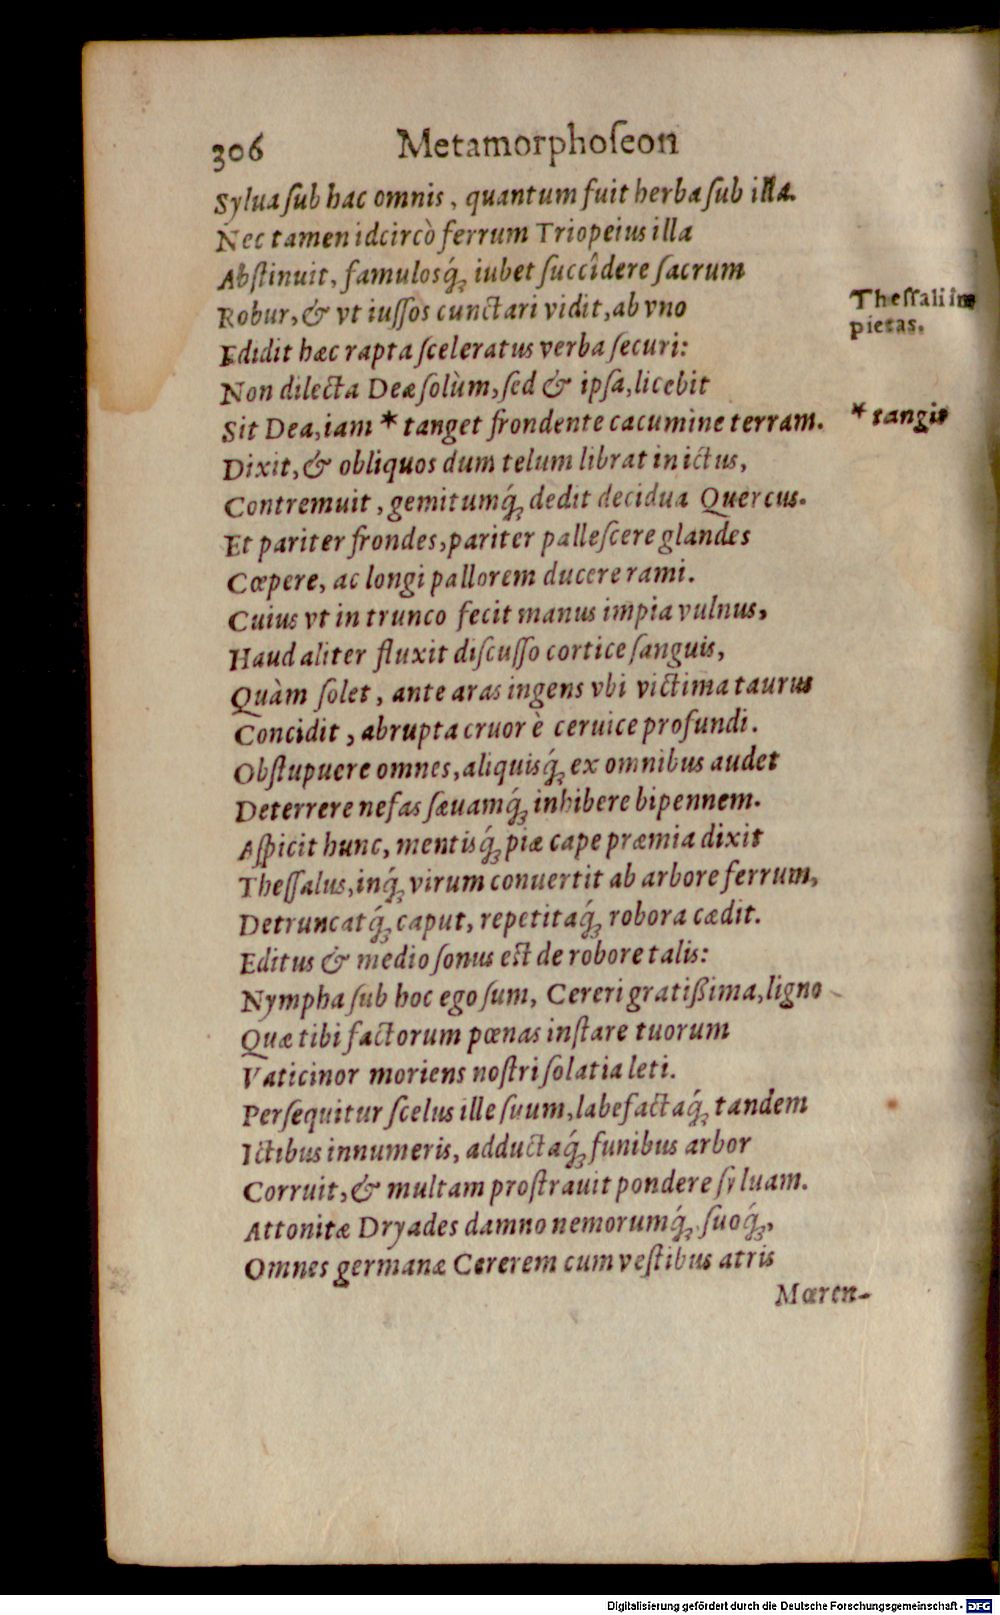 306 Metamorphoſeon
Sylua ſub hac omnis, quantum fuit herba ſub illa.
Nec tamen idcircò ferrum Triopeius illa
Abſtinuit, famulosq́; iubet ſuccîdere ſacrum
Robur, & vt iuſſos cunctari vidit, ab vno
Theſſali im
pietas.
Edidit hæc rapta ſceleratus verba ſecuri:
Non dilecta Deæ ſolùm, ſed & ipſa, licebit
Sit Dea, iam * tanget frondente cacumine terram.
* tangit
Dixit, & obliquos dum telum librat in ictus,
Contremuit, gemitumq́; dedit decidua Quercus.
Et pariter frondes, pariter palleſcere glandes
Cœpere, ac longi pallorem ducere rami.
Cuius vt in trunco fecit manus impia vulnus,
Haud aliter fluxit diſcuſſo cortice ſanguis,
Quàm ſolet, ante aras ingens vbi victima taurus
Concidit, abrupta cruor è ceruice profundi.
Obſtupuere omnes, aliquisq́; ex omnibus audet
Deterrere nefas ſæuamq́; inhibere bipennem.
Aſpicit hunc, mentisq́; piæ cape præmia dixit
Theſſalus, inq́; virum conuertit ab arbore ferrum,
Detruncatq́; caput, repetitaq́; robora cædit.
Editus & medio ſonus est de robore talis:
Nympha ſub hoc ego ſum, Cereri gratißima, ligno
Quæ tibi factorum pœnas inſtare tuorum
Vaticinor moriens noſtri ſolatia leti.
Perſequitur ſcelus ille ſuum, labefactaq́; tandem
Ictibus innumeris, adductaq́; funibus arbor
Corruit, & multam proſtrauit pondere ſyluam.
Attonitæ Dryades damno nemorumq́; ſuoq́;,
Omnes germanæ Cererem cum veſtibus atris
Mœren-
Digitalisierung gefördert durch die Deutsche Forschungsgemeinschaft - DFG